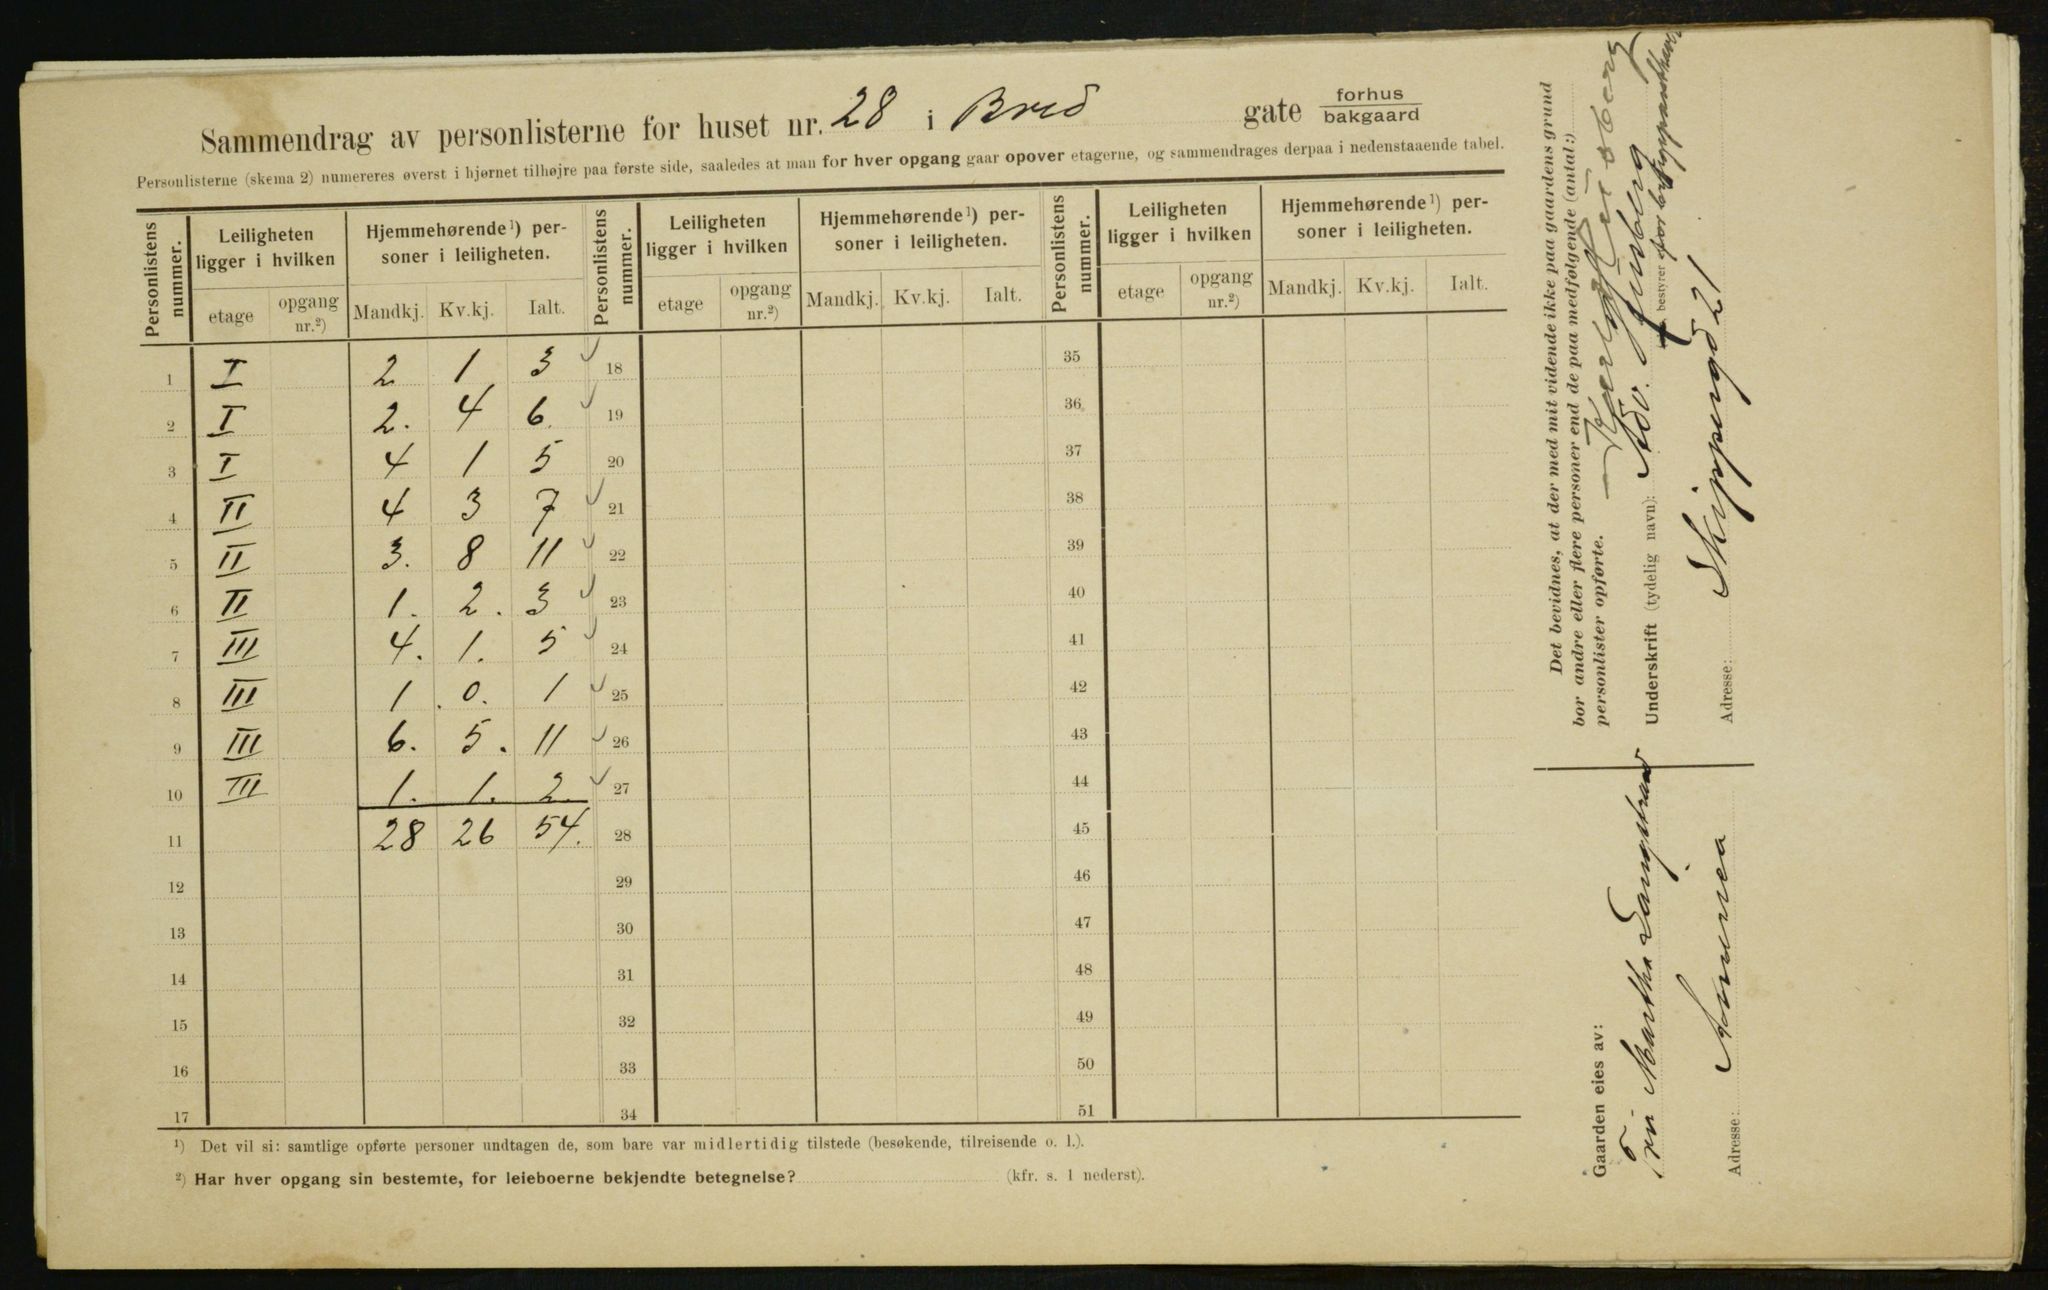 Sammendrag av personlisterne for huset nr. 28 i Bred gate forhus
bakgaard
Personlisterne (skema 2) numereres øverst i hjørnet tilhøjre paa første side, saaledes at man for hver opgang gaar opover etagerne, og sammendrages derpaa i nedenstaaende tabel.
Personlistens nummer. Leiligheten ligger i hvilken Hjemmehørende¹) personer i leiligheten. Personlistens nummer. Leiligheten ligger i hvilken Hjemmehørende¹) personer i leiligheten. Personlistens nummer. Leiligheten ligger i hvilken Hjemmehørende¹) personer i leiligheten.
etage opgang nr.²) Mandkj. Kv.kj. Ialt. etage opgang nr.²) Mandkj. Kv.kj. Ialt. etage opgang nr.²) Mandkj. Kv.kj. Ialt.
1 I 2 1 3 18 35
2 I 2. 4 6. 19 36
3 I 4 1 5 20 37
4 II 4 3 7 21 38
5 II 3. 8 11 22 39
6 II 1. 2. 3 23 40
7 III 4. 1. 5 24 41
8 III 1. 0. 1 25 42
9 III 6. 5. 11 26 43
10 III 1. 1. 2. 27 44
11 28 26 54. 28 45
12 29 46
13 30 47
14 31 48
15 32 49
16 33 50
17 34 51
¹) Det vil si: samtlige opførte personer undtagen de, som bare var midlertidig tilstede (besøkende, tilreisende o. l.).
²) Har hver opgang sin bestemte, for leieboerne bekjendte betegnelse? (kfr. s. 1 nederst).
Det bevidnes, at der med mit vidende ikke paa gaardens grund
bor andre eller flere personer end de paa medfølgende (antal:)
personlister opførte.
Underskrift (tydelig navn): Adv.
bestyrer
Adresse: Skippergd 21
Gaarden eies av:
Frü Martha Langstrand
Adresse: Amerika